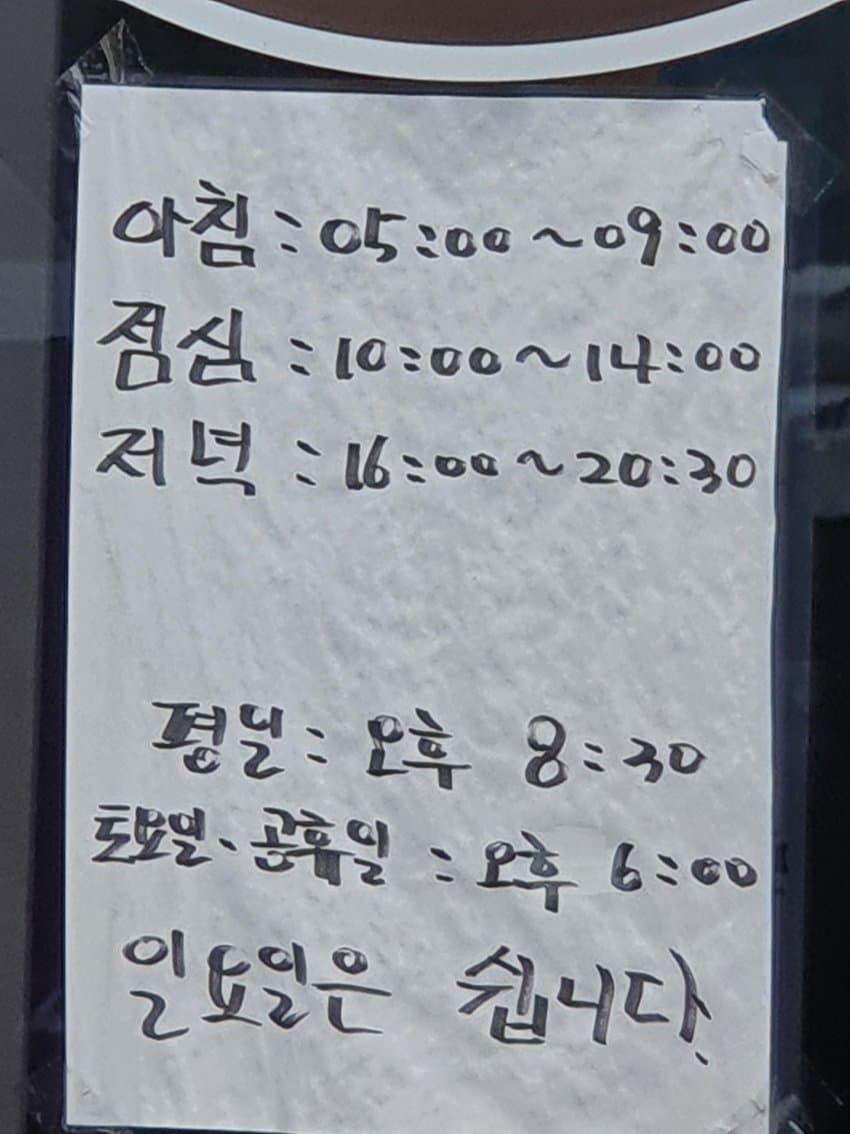 아침 : 05:00 ~ 09:00
점심 : 10:00 ~ 14:00
저녁 : 16:00 ~ 20:30
평일 : 오후 8:30
토요일、공휴일 : 오후 6:00
일요일은 쉽니다.